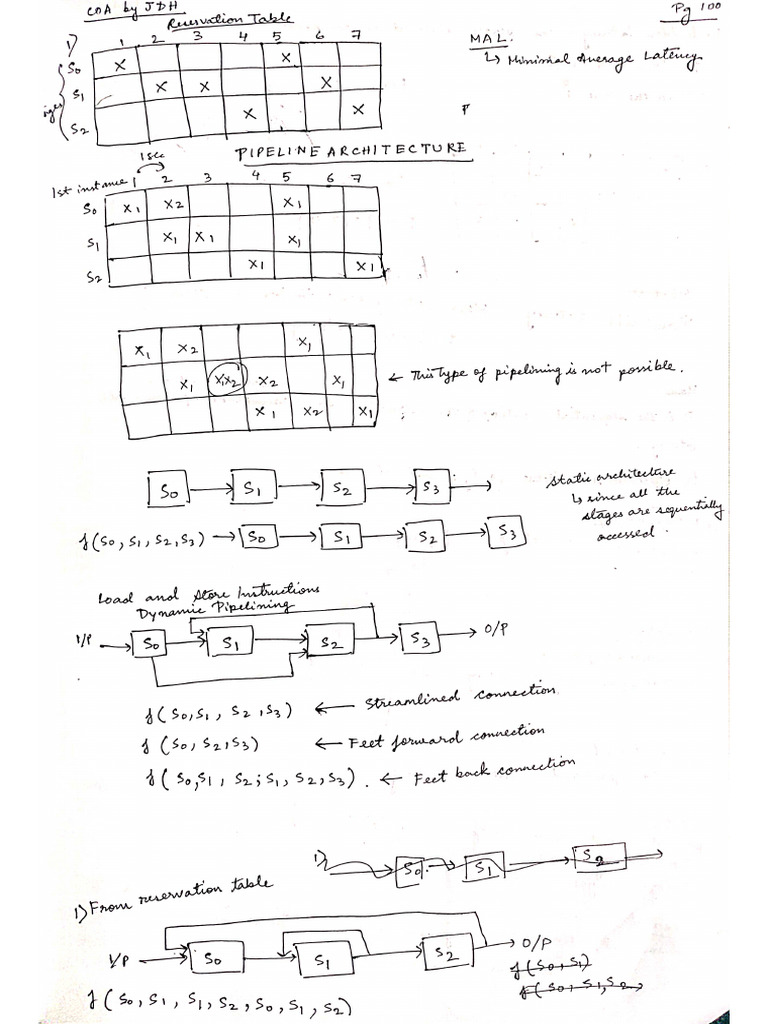 COA by JDH
Pg 100
Reservation Table
1)
1 2 3 4 5 6 7
MAL:
↳ Minimal Average Latency
S0 X X
S1 X X X
S2 X X
PIPELINE ARCHITECTURE
1 sec
1st instance 1 2 3 4 5 6 7
S0 X1 X2 X1
S1 X1 X1 X1
S2 X1 X1
X1 X2 X1
X1 X1X2 X2 X1
X1 X2 X1
← This type of pipelining is not possible.
S0 S1 S2 S3
Static architecture
↳ since all the
stages are sequentially
accessed.
f(S0, S1, S2, S3) → S0 S1 S2 S3
Load and Store Instructions
Dynamic Pipelining
I/P → S0 S1 S2 S3 → O/P
f(S0, S1, S2, S3) ← Streamlined connection
f(S0, S2, S3) ← Feet forward connection
f(S0, S1, S2; S1, S2, S3). ← Feet back connection
1) S0 S1 S2
1) From reservation table
I/P → S0 S1 S2 → O/P
f(S0, S1)
f(S0, S1, S2,
f(S0, S1, S1, S2, S0, S1, S2)